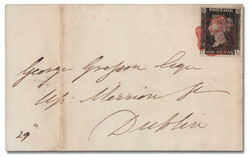 POSTAGE
ONE PENNY
George Grepson Esqr
Up: Merrion St
Dublin
29